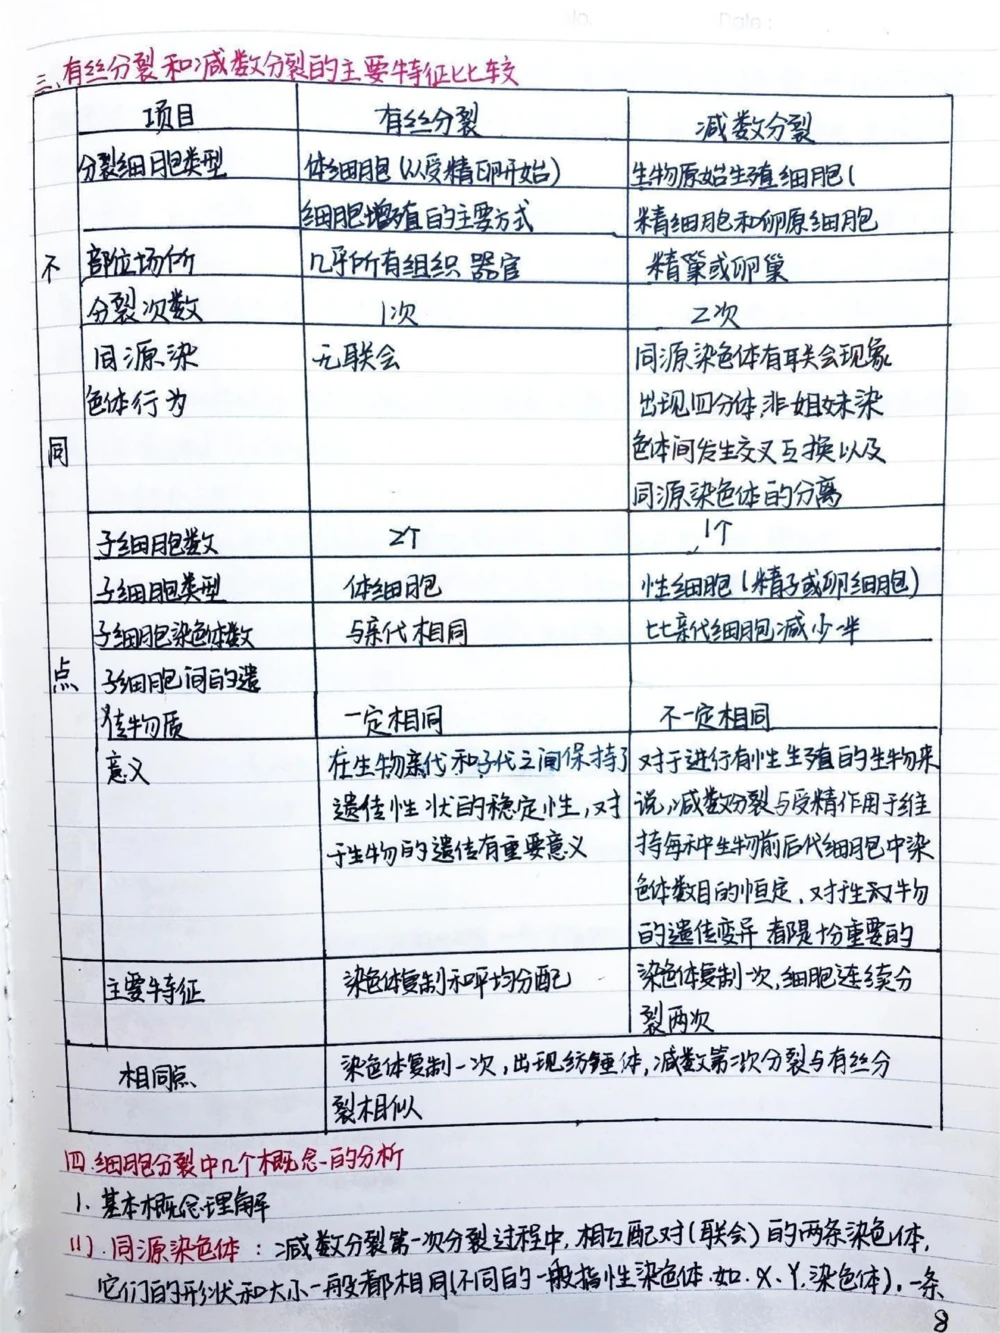 No. Date:
三、有丝分裂和减数分裂的主要特征比较
项目 有丝分裂 减数分裂
分裂细胞类型 体细胞(以受精卵开始) 生物原始生殖细胞(
细胞增殖的主要方式 精细胞和卵原细胞
不 部位场所 几乎所有组织器官 精巢或卵巢
分裂次数 1次 2次
同源染 无联会 同源染色体有联会现象
色体行为 出现四分体,非姐妹染
同 色体间发生交叉互换以及
同源染色体的分离
子细胞数 2个 1个
子细胞类型 体细胞 性细胞(精子或卵细胞)
子细胞染色体数 与亲代相同 比亲代细胞减少半
点 子细胞间的遗
传物质 一定相同 不一定相同
意义 在生物亲代和子代之间保持了 对于进行有性生殖的生物来
遗传性状的稳定性,对 说,减数分裂与受精作用于维
于生物的遗传有重要意义 持每种生物前后代细胞中染
色体数目的恒定,对于生物
的遗传变异都是十分重要的
主要特征 染色体复制和平均分配 染色体复制一次,细胞连续分
裂两次
相同点 染色体复制一次,出现纺锤体,减数第二次分裂与有丝分
裂相似
四.细胞分裂中几个概念的分析
1.基本概念理解
(1).同源染色体:减数分裂第一次分裂过程中,相互配对(联会)的两条染色体,
它们的形状和大小一般都相同(不同的一般指性染色体.如.X、Y.染色体),一条
8